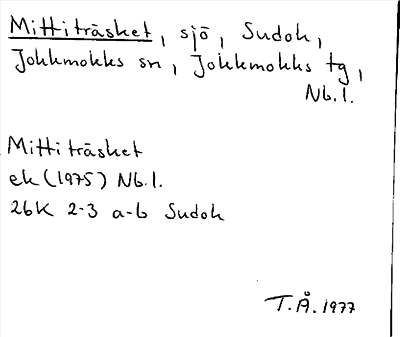 Mittiträsket, sjö, Sudok,
Jokkmokks sn, Jokkmokks tg,
Nb.l.
Mittiträsket
ek (1975) Nb.l.
26K 2-3 a-b Sudok
T.Å. 1977